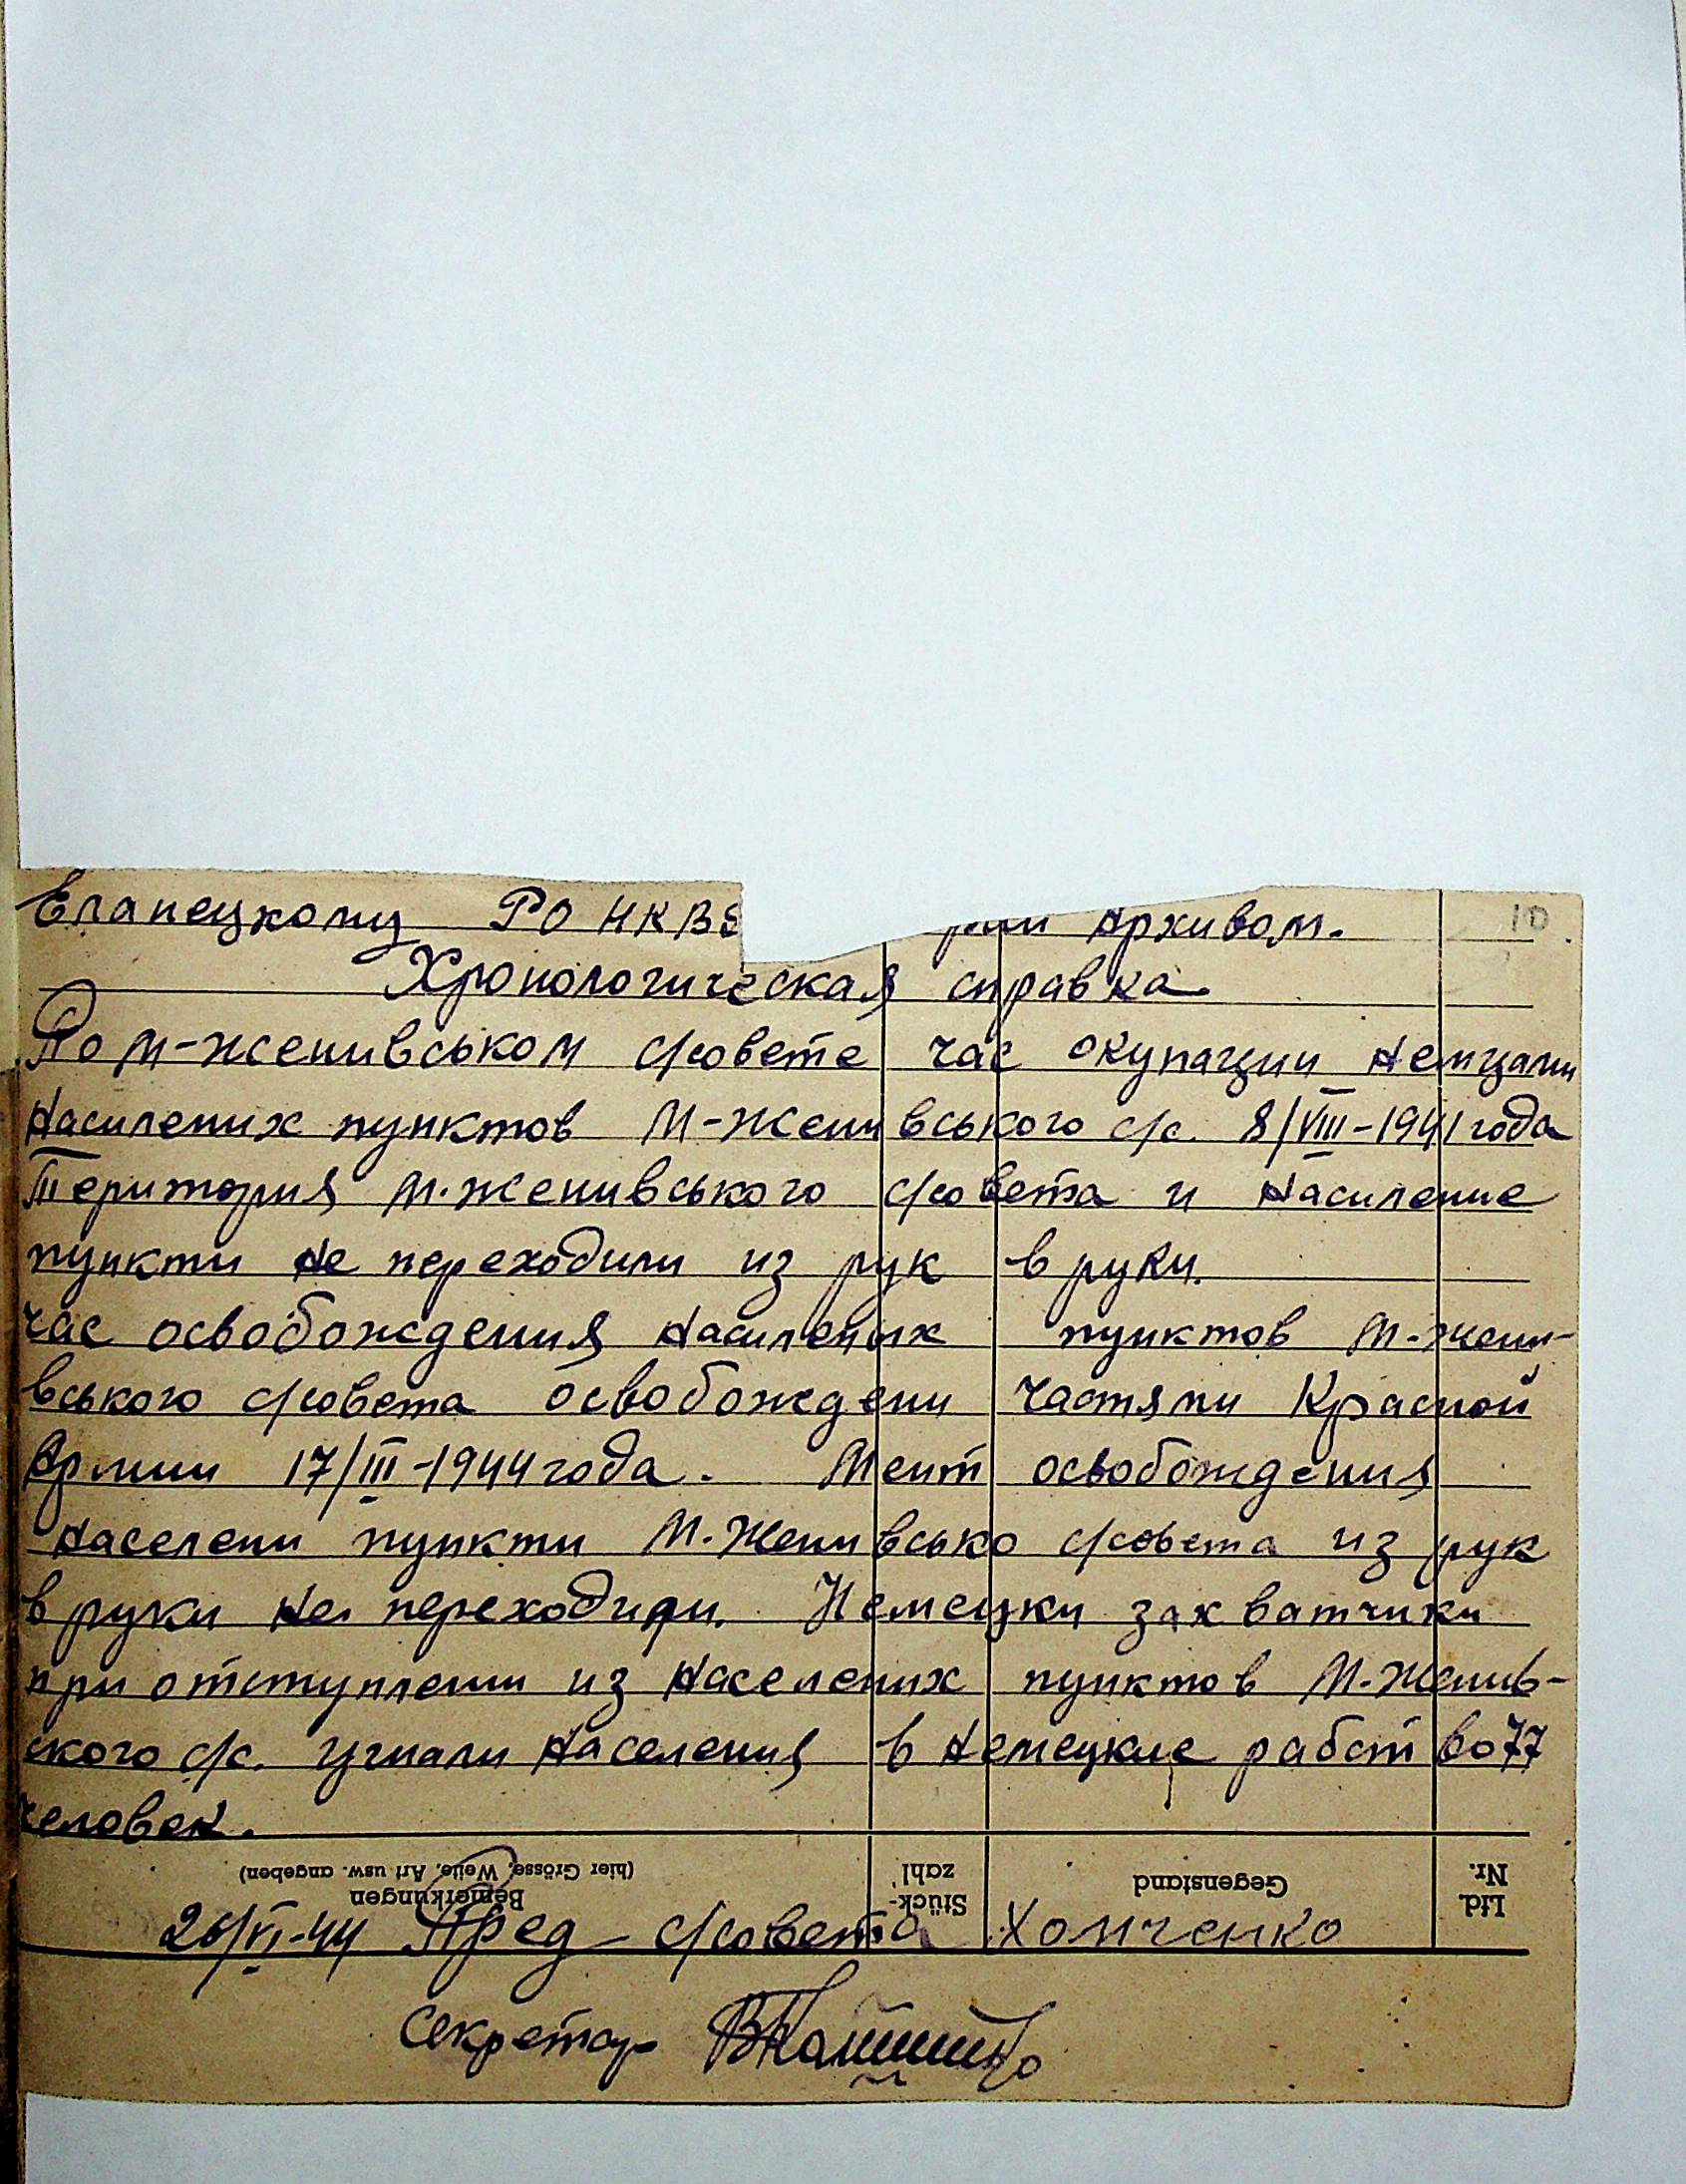 Еланецкому РО НКВД Архивом.
10
Хронологическая справка
По М-женивськом с/совете час окупации немцами
насилених пунктов М-женивського с/с. 8/VIII-1941 года
Територия М.женивського с/совета и насиление
пункти не переходили из рук в руки.
час освобождения насиленых пунктов М.жени-
вського с/совета освобождени частями Красной
Армии 17/III-1944 года. освобождения
населени пункти М.Женивсько с/совета из рук
в руки не переходили. Немецки захватчики
при отступлении из населених пунктов М.Женив-
ского с/с. угнали населения в немецкие рабство 77
человек.
(hier Grösse, Weite, Art usw. angeben)
Bemerkungen
Stück-
zahl
Gegenstand
Lfd.
Nr.
26/VI-44 Пред с/совета Хомченко
Секретар